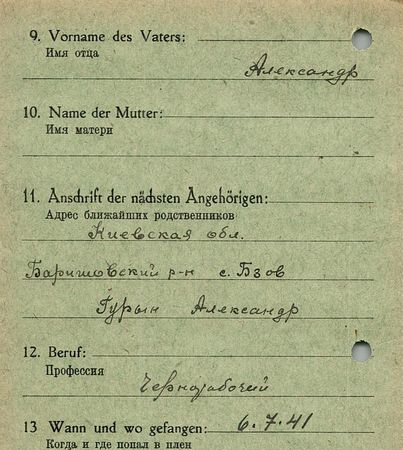 9. Vorname des Vaters:
Имя отца
Александр
10. Name der Mutter:
Имя матери
11. Anschrift der nächsten Angehörigen:
Адрес ближайших родственников
Киевская обл.
Баришовский р-н с. Бзов
Гурын Александр
12. Beruf:
Профессия
Чернорабочий
13 Wann und wo gefangen: 6.7.41
Когда и где попал в плен